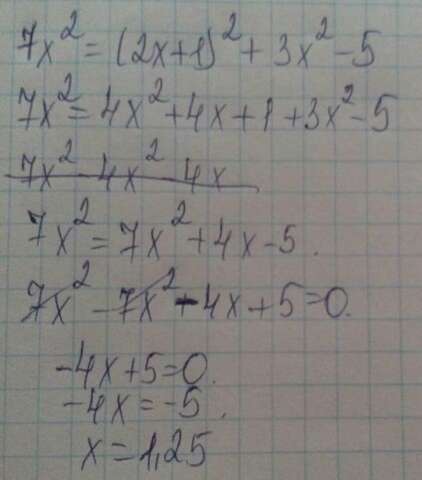 7x² = (2x+1)² + 3x² - 5
7x² = 4x² + 4x + 1 + 3x² - 5
7x² 4x² 4x
7x² = 7x² + 4x - 5.
7x² - 7x² - 4x + 5 = 0.
-4x + 5 = 0.
-4x = -5.
x = 1,25